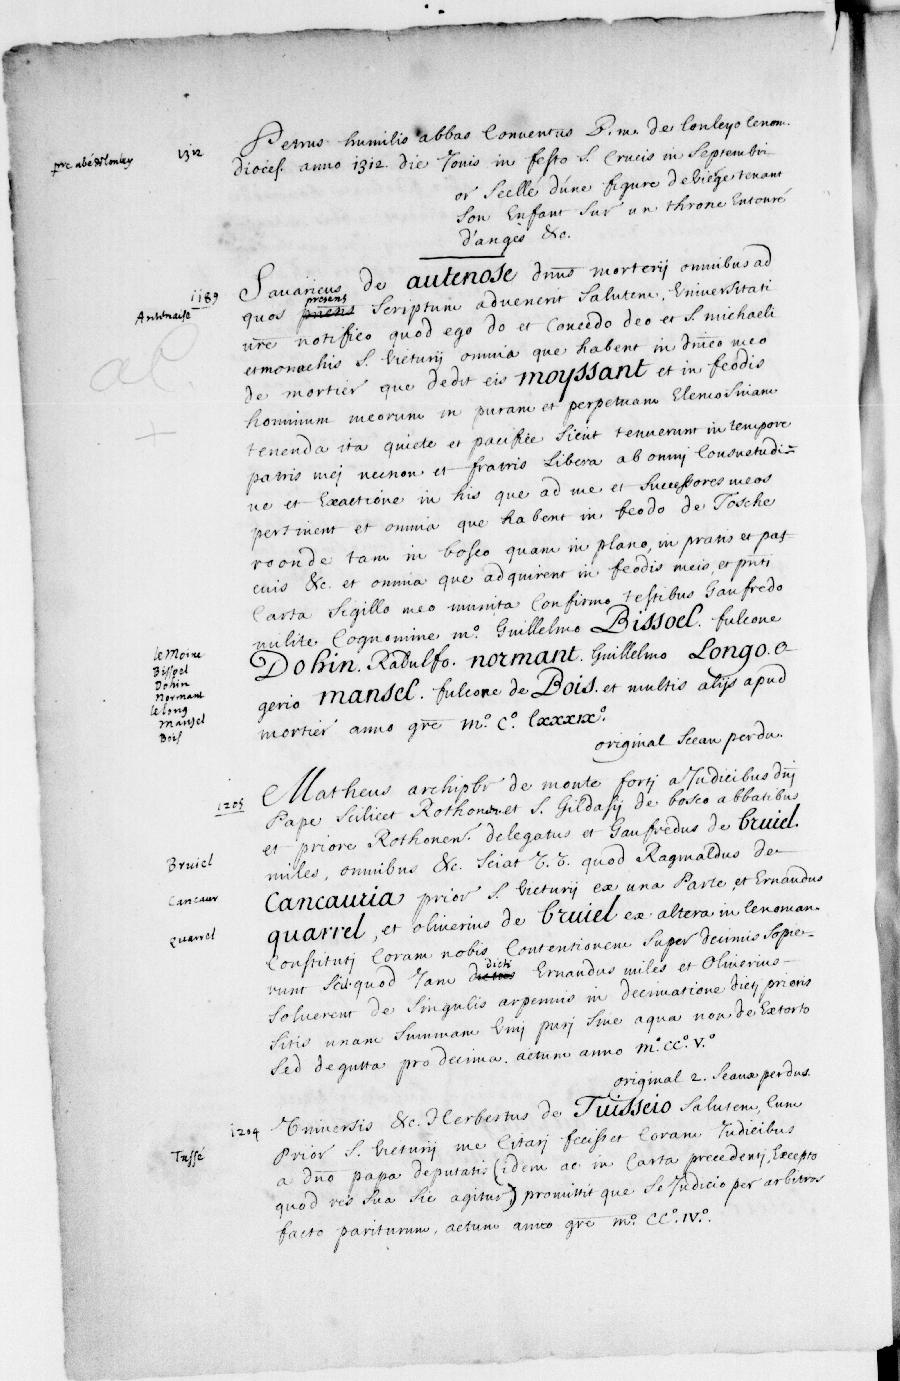 pre abé de Lonlay
1312
Petrus humilis abbas Conventus B. m. de Lonleyo Cenom.
dioces. anno 1312. die Jovis in festo S. Crucis in Septembri
or Scellé d'une figure de Viége tenant
son Enfant sur un throne Entouré
d'anges &c.
1189
Antenaise
Savaricus de autenose dnus morterij omnibus ad
quos prñens presens scriptum advenerit Salutem. Universitati
vre notifico quod ego do et Concedo deo et S. michaeli
et monachis S. Victurij omnia que habent in dnico meo
de mortier que dedit eis moyssant et in feodis
hominum meorum in puram et perpetuam Elemosinam
tenenda ita quiete et pacifice sicut tenuerunt in tempore
patris mej necnon et fratris Libera ab omnj Consuetudi=
ne et Exactione in his que ad me et Successores meos
pertinent et omnia que habent in feodo de Fosche
roonde tam in bosco quam in plano, in pratis et pas-
cuis &c. et omnia que adquirent in feodis meis, et pnti
Carta Sigillo meo munita Confirmo testibus Gaufredo
milite Cognomine mo. Guillelmo Bissoel. fulcone
Dohin. Radulfo. normant. Guillelmo Longo. o-
gerio mansel. fulcone de Bois. et multis alijs apud
mortier anno gre mo. Co. lxxxixo.
original Sceau perdu.
le Moine
Bissoel
Dohin
Normant
le long
Mansel
Bois
1205
Matheus archipbr de monte fortj a Judicibus dnj
Pape Scilicet Rothonen et S. Gildasij de bosco abbatibus
et priore Rothonen. delegatus et Gaufredus de bruiel.
miles, omnibus &c. Sciat V. V. quod Raginaldus de
Cancauria prior S. Victurij ex una Parte, et Ernandus
quarrel, et oliverius de bruiel ex altera in Cenoman.
Constitutj Coram nobis Contentionem Super decimis Sopie-
runt Scil. quod Jam dictus dicti Ernandus miles et Oliverius
Solverent de Singulis arpennis in decimatione dictj prioris
Sitis unam Summam Vinj purj Sine aqua non de Extorto
Sed de gutta pro decima. actum anno mo. CCo. Vo.
original 2. Sceaux perdus.
Bruiel
Cancaur
quarrel
1204
Tussé
Universis &c. Herbertus de Tuisseio Salutem, Cum
Prior S. Victurij me Citarj fecisset Coram Judicibus
a dno papa deputatis (idem ac in Carta precedentj, Excepto
quod res Sua Sic agitur,) promittit que Se Judicio per arbitros
facto pariturum, actum anno gre mo. CCo. IVo.